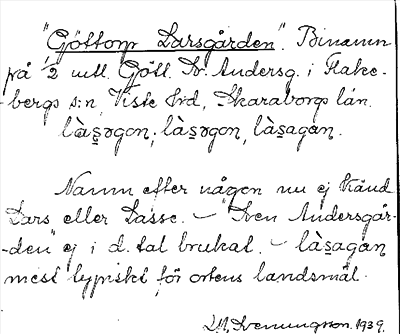 "Göttorp Larsgården". Binamn
på 1/2 mtl. Gött. Sv. Andersg. i Flake-
bergs s:n, Viste hrd, Skaraborgs län.
là̱s̱əgon, làs̱əgon, làs̱agan.
Namn efter någon nu ej känd
Lars eller Lasse. – "Sven Andersgår-
-den" ej i d. tal brukat. – làs̱agan
mest typiskt för ortens landsmål.
1939.